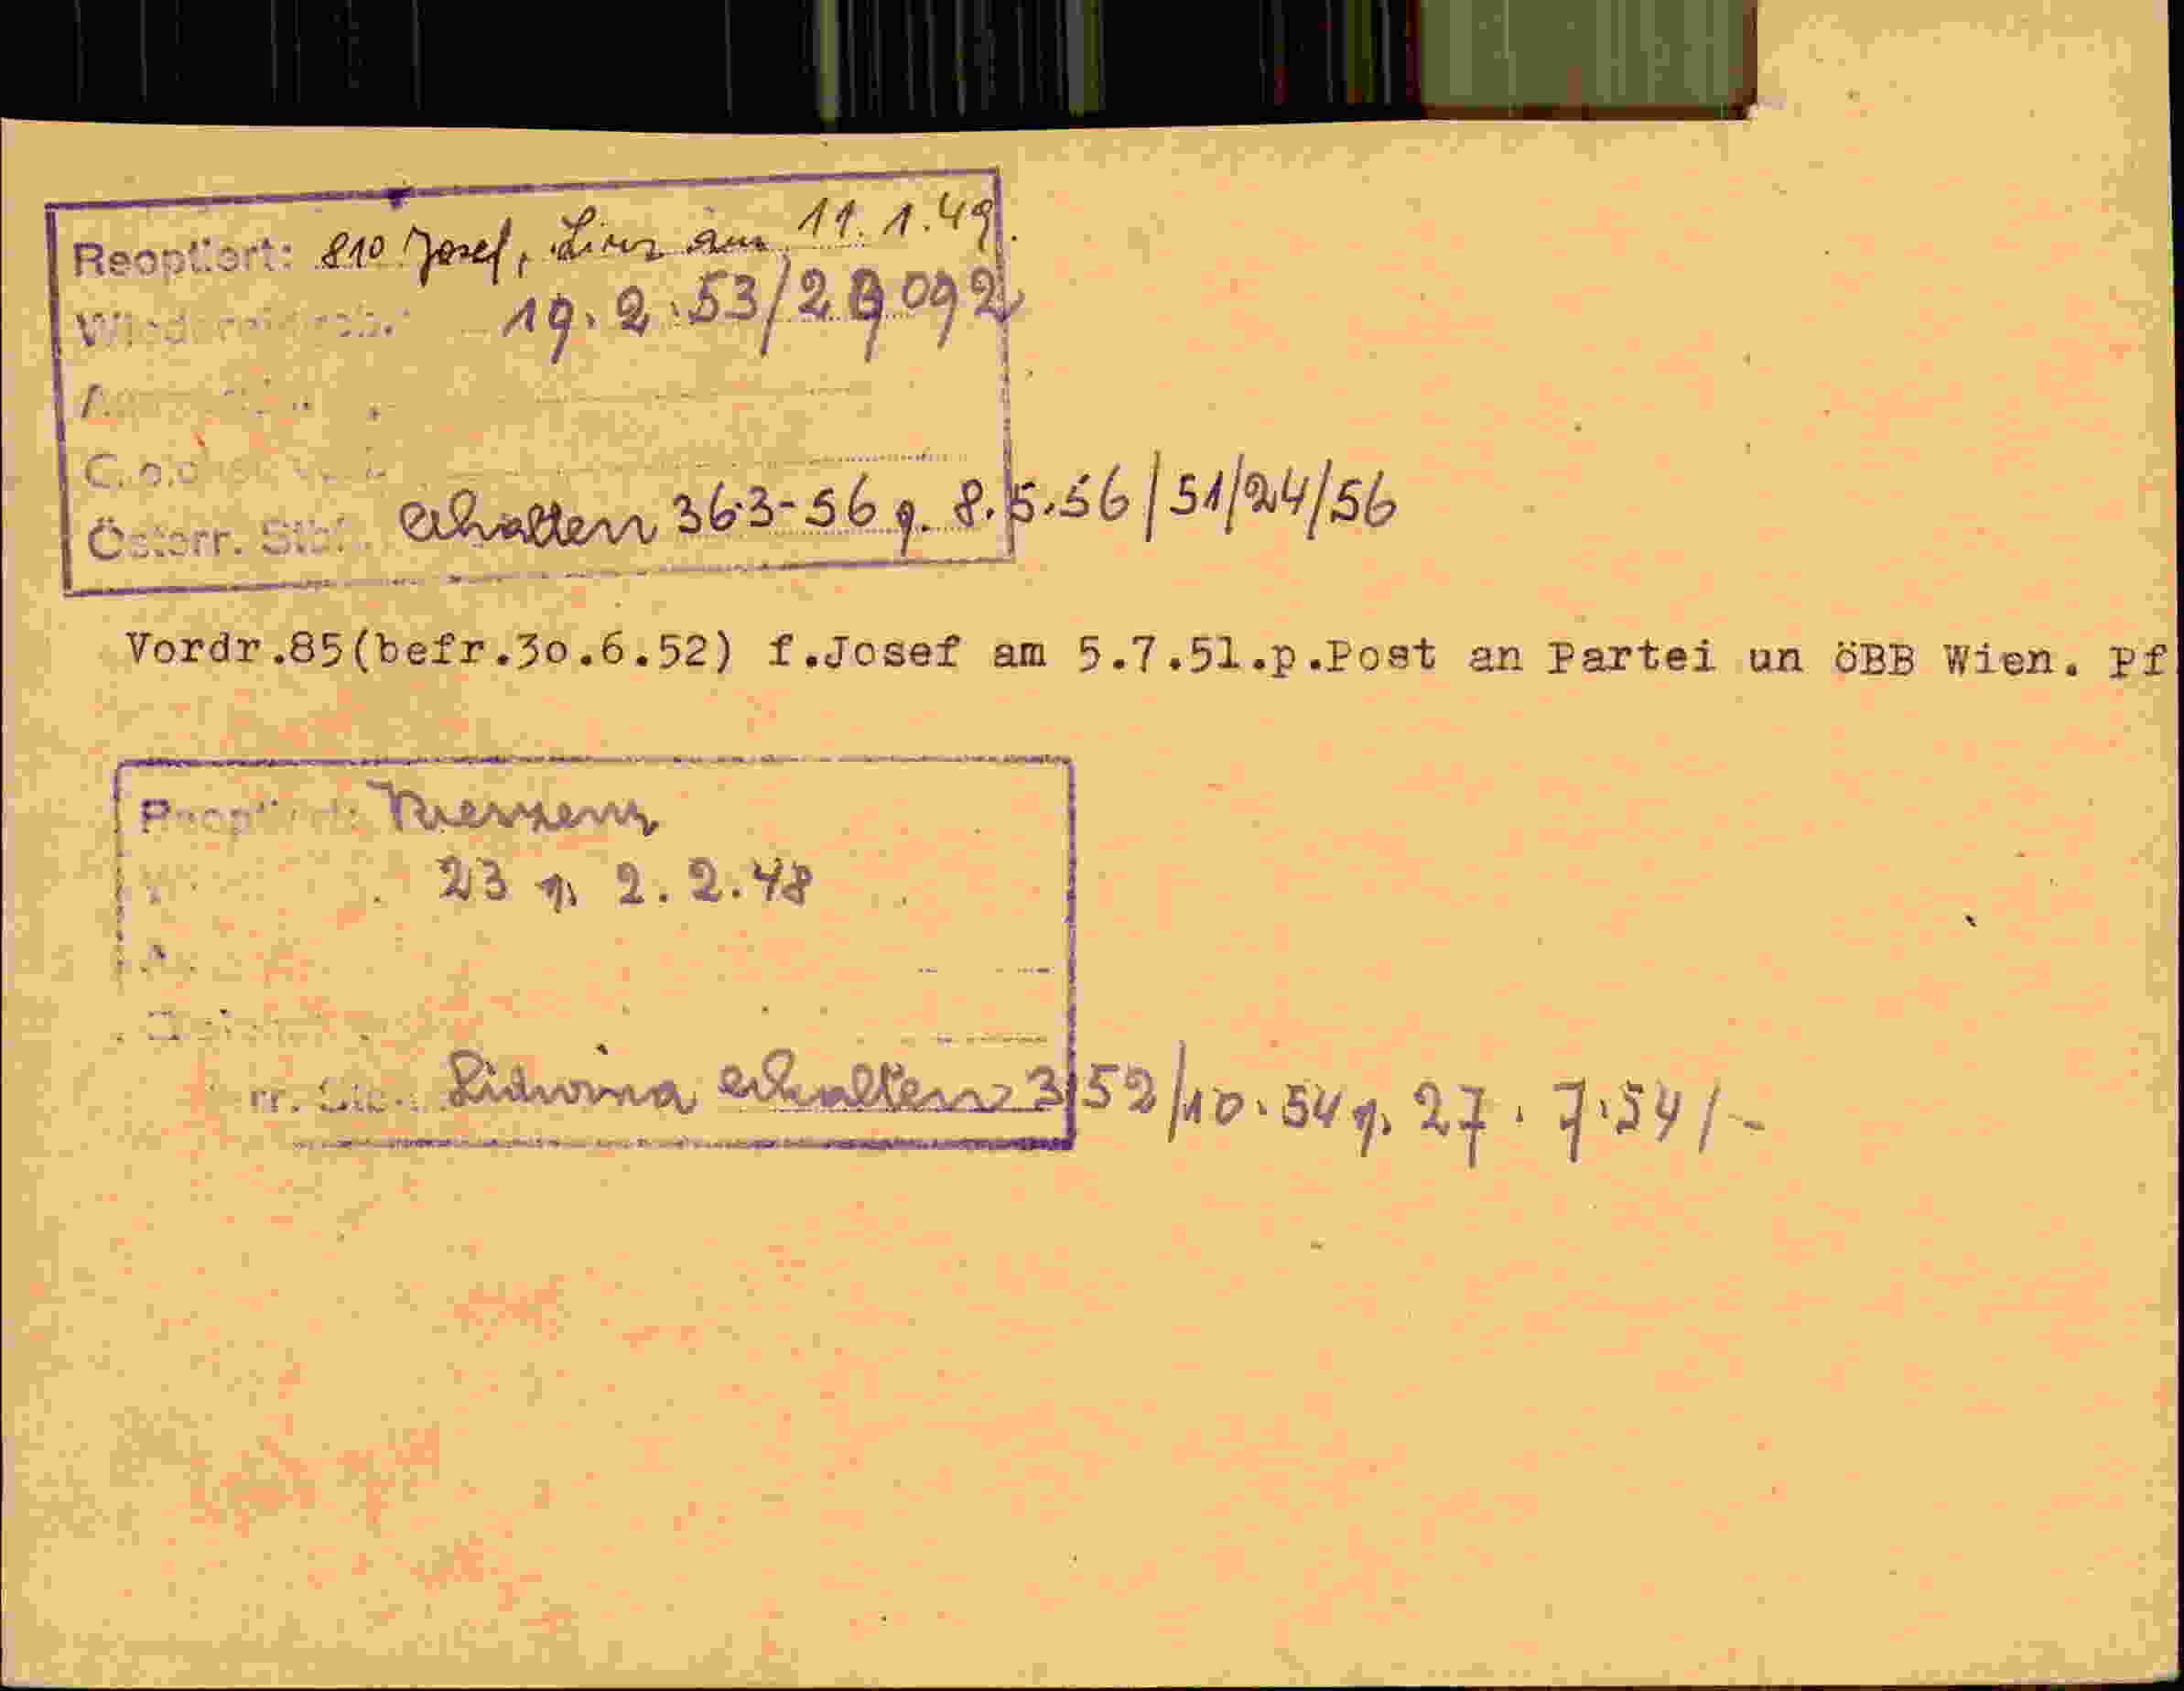 Reoptiert: 810 Josef, Linz am 11. 1. 49.
19. 2. 53/29092
Österr. Stb. erhalten 363-56 g. 8.5.56/51/24/56
Vordr.85(befr.3o.6.52) f.Josef am 5.7.51.p.Post an Partei un öBB Wien. Pf
23 g. 2. 2. 48
Lidwina erhalten 3/52/10.54 g. 27. 7.54/-